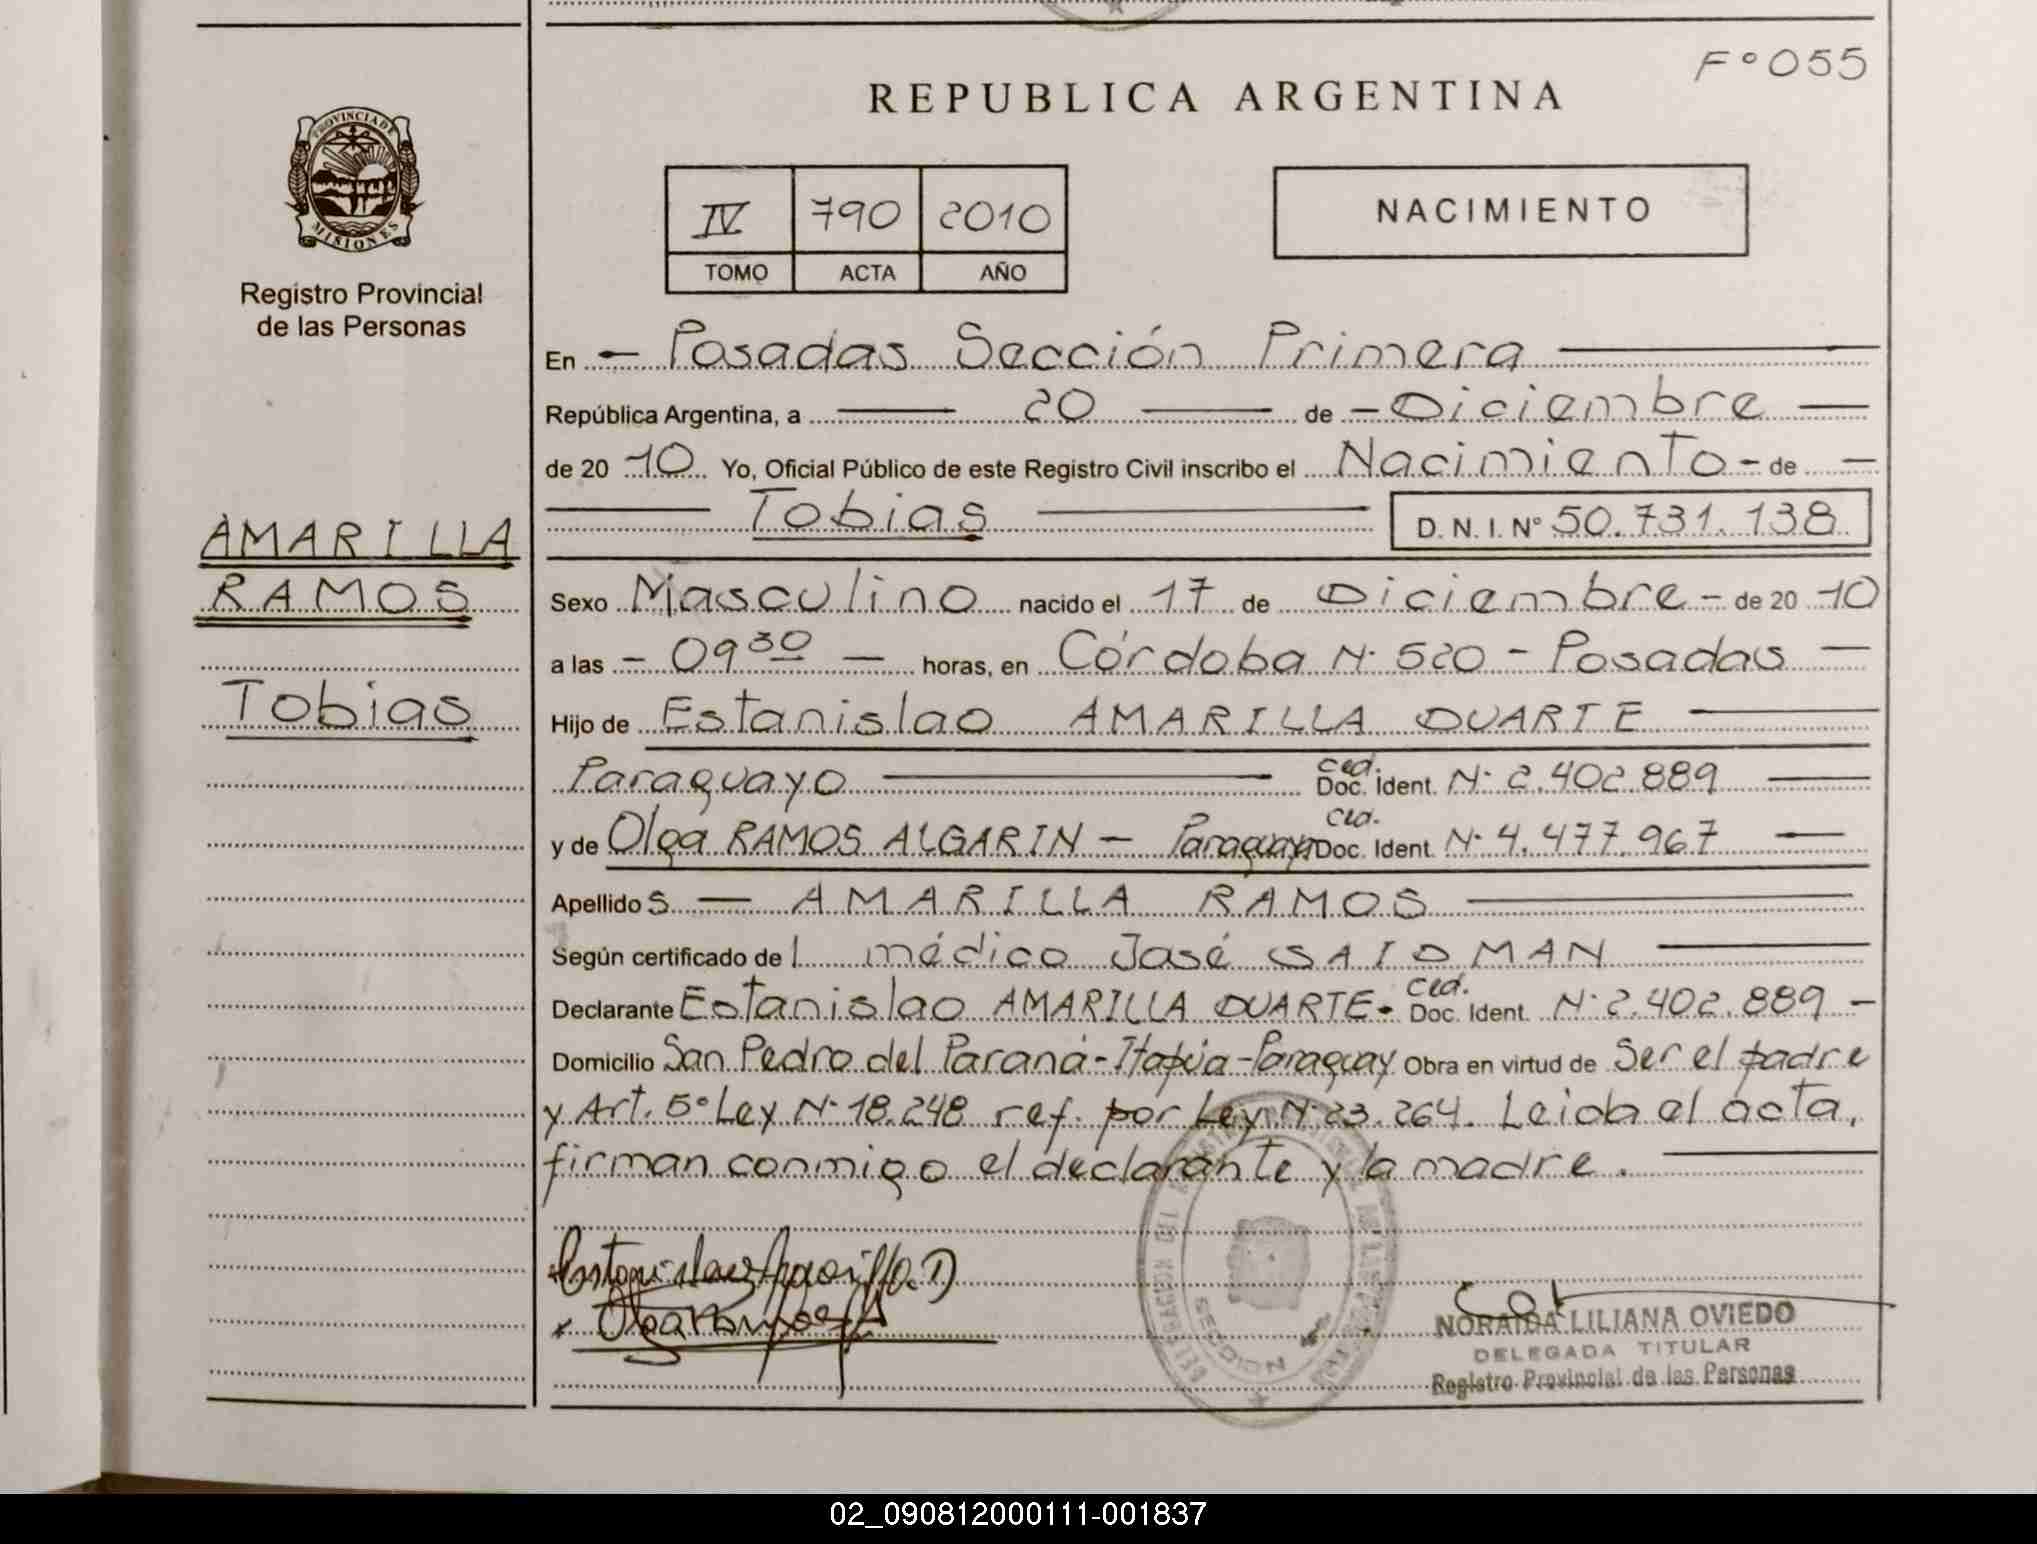 F° 055
REPUBLICA ARGENTINA
PROVINCIA DE
MISIONES
Registro Provincial
de las Personas
IV 790 2010
TOMO ACTA AÑO
NACIMIENTO
En - Posadas Sección Primera
República Argentina, a 20 de - Diciembre
de 20 10 Yo, Oficial Público de este Registro Civil inscribo el Nacimiento - de
Tobias D. N. I. N° 50.731.138
AMARILLA
RAMOS
Tobias
Sexo Masculino nacido el 17 de Diciembre - de 20 10
a las - 09 30 - horas, en Córdoba N· 520 - Posadas
Hijo de Estanislao AMARILLA DUARTE
Paraguayo ced. Doc. Ident. N· 2.402.889
y de Olga RAMOS ALGARIN - Paraguaya ced. Doc. Ident. N· 4.477.967
Apellido s - AMARILLA RAMOS
Según certificado de l médico José SAIDMAN
Declarante Estanislao AMARILLA DUARTE - ced. Doc. Ident. N· 2.402.889 -
Domicilio San Pedro del Paraná - Itapúa - Paraguay Obra en virtud de Ser el padre
y Art. 5° Ley N· 18.248 ref. por Ley N· 23.264. Leida el acta,
firman conmigo el declarante y la madre.
SECCION
NORAIDA LILIANA OVIEDO
DELEGADA TITULAR
Registro Provincial de las Personas
02_090812000111-001837